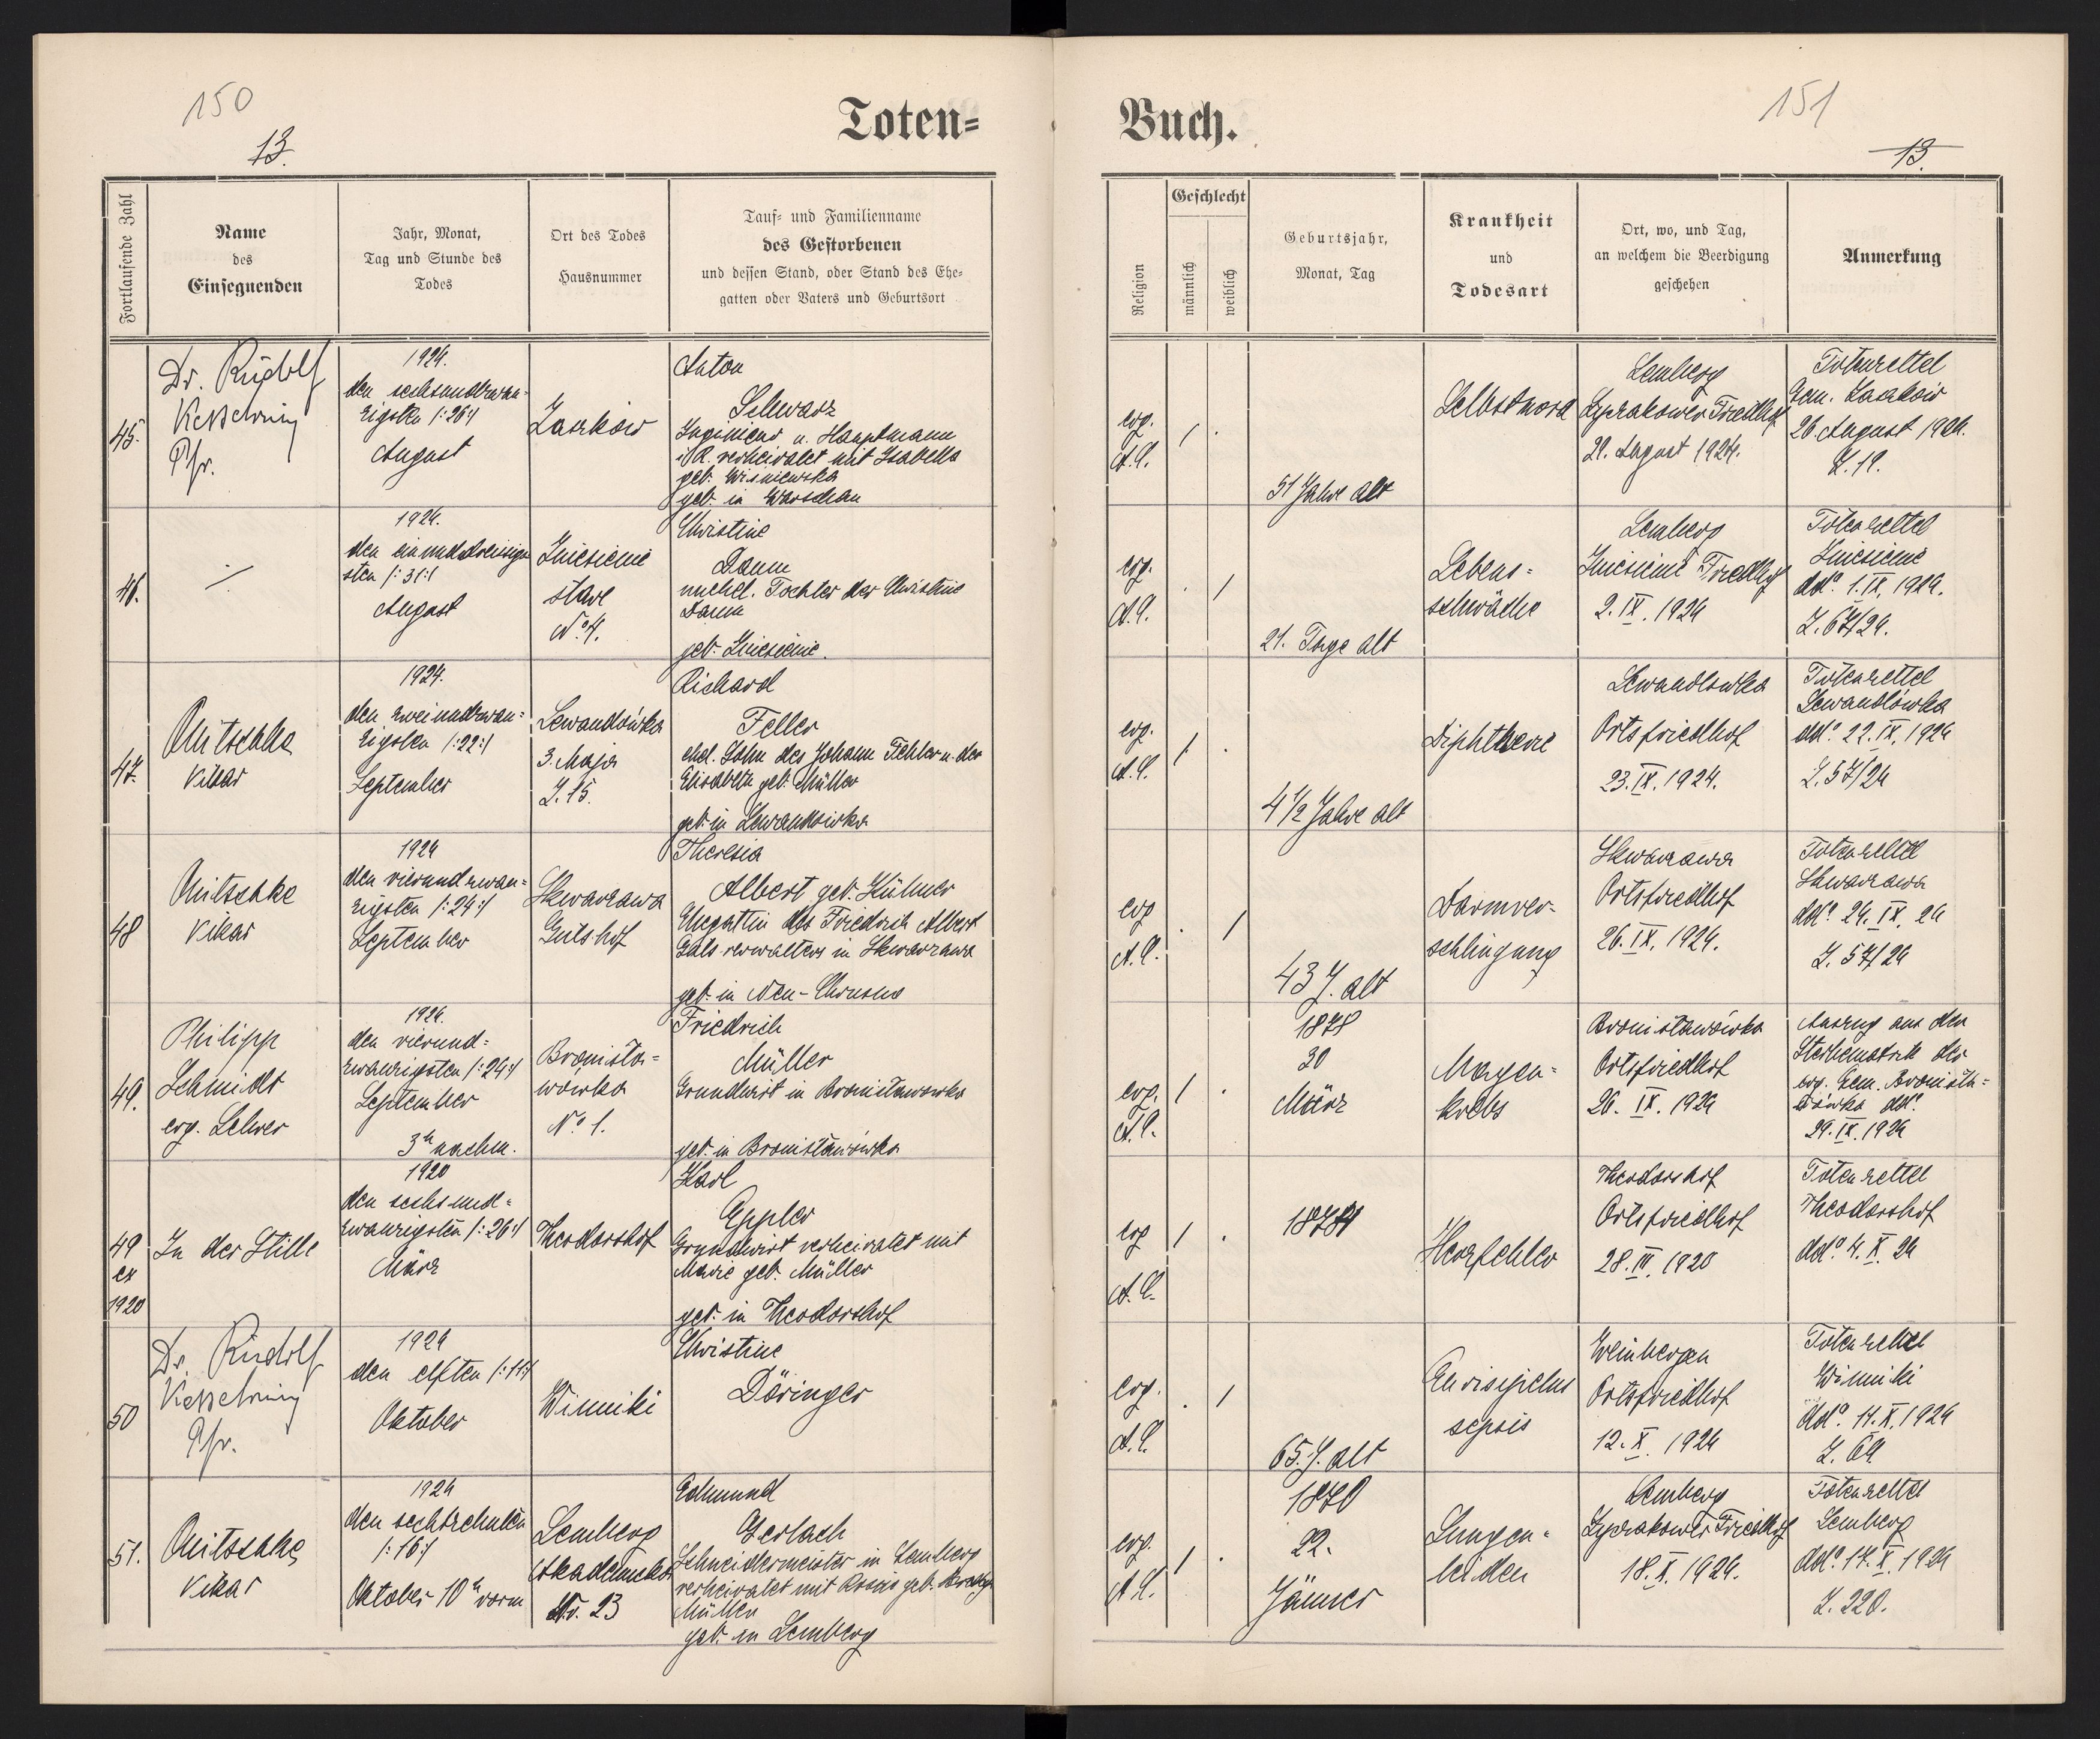 150
13.
Toten=
Fortlaufende Zahl
Name
des
Einsegnenden
Jahr, Monat,
Tag und Stunde des
Todes
Ort des Todes
Hausnummer
Tauf= und Familienname
des Gestorbenen
und dessen Stand, oder Stand des Ehe=
gatten oder Vaters und Geburtsort
45.
Dr. Rudolf
Kesselring
Pfr.
1924.
den sechsundzwan-
zigsten /:26:/
August
Laszków
Anton
Schwarz
Ingenieur u. Hauptmann
i/R. verheiratet mit Isabella
geb. Wisniewska
geb. in Warschau
46.
1924.
den einunddreissig-
sten /:31:/
August
Zniesienie
stare
No 4.
Christine
Daum
unehel. Tochter der Christine
Daum
geb. Zniesienie.
47.
Nitschke
Vikar
1924.
den zweiundzwan=
zigsten /:22:/
September
Lewandówka
3. Maja
Z. 15.
Richard
Feller
ehel. Sohn des Johann Fehler u. der
Elisabeth geb. Müller
geb. in Lewandówka
48
Nitschke
Vikar
1924
den vierundzwan=
zigsten /:24:/
September
Skwarzawa
Gutshof
Theresia
Albert geb. Hühner
Ehegattin des Friedrich Albert
Gutsverwalters in Skwarzawa
geb. in Neu-Chrusno
49.
Philipp
Schmidt
evg. Lehrer
1924.
den vierund=
zwanzigsten /:24:/
September
3h nachm.
Bronisła=
wówka
No 1.
Friedrich
Müller
Grundwirt in Bronisławówka
geb. in Bronisławówka
49
ex
1920
In der Stille
1920
den sechsund=
zwanzigsten /:26:/
März
Theodorshof
Karl
Eppler
Grundwirt verheiratet mit
Marie geb. Müller
geb. in Theodorshof
50
Dr. Rudolf
Kesselring
Pfr.
1924
den elften /:11:/
Oktober
Winniki
Christine
Döringer
51.
Nitschke
Vikar
1924
den sechszehnten
/:16:/
Oktober 10h vorm
Lemberg
Akademicka
No. 23
Edmund
Gerlach
Schneidermeister in Lemberg
verheiratet mit geb.
Müller
geb. in Lemberg
151
13.
Buch.
Religion
Geschlecht
männlich
weiblich
Geburtsjahr,
Monat, Tag
Krankheit
und
Todesart
Ort, wo, und Tag,
an welchem die Beerdigung
geschehen
Anmerkung
evg.
A.C.
/ .
51 Jahre alt
Selbstmord
Lemberg
Lyczakower Friedhof
29. August 1924.
Totenzettel
Gem. Laszków
26 August 1924.
Z. 19.
evg.
A.C.
. /
21. Tage alt
Lebens=
schwäche
Lemberg
Zniesienie Friedhof
2. IX. 1924
Totenzettel
Zniesienie
ddo. 1.IX. 1924.
Z. 67/24.
evg.
A.C.
/ .
4 1/2 Jahre alt
Diphtherie
Lewandówka
Ortsfriedhof
23. IX. 1924.
Totenzettel
Lewandówka
ddo. 22. IX. 1924
Z. 57/24
evg
A.C.
. /
43 J. alt
Darmver-
schlingung
Skwarzawa
Ortsfriedhof
26. IX. 1924.
Totenzettel
Skwarzawa
ddo. 24. IX. 24
Z. 57/24
evg.
A.C.
/ .
1878
30
März
Magen=
krebs
Bronisławówka
Ortsfriedhof
26. IX. 1924
Auszug aus der
Sterbematrik der
evg. Gem. Bronisła=
wówka ddo.
29. IX. 1924
evg
A.C.
/ .
Herzfehler
Theodorshof
Ortsfriedhof
28. III. 1920
Totenzettel
Theodorshof
ddo 4. X. 24
evg.
A.C.
. /
65. J. alt
sepsis
Weinbergen
Ortsfriedhof
12. X. 1924
Totenzettel
Winniki
ddo. 11. X. 1924
Z. 64
evg.
A.C.
/ .
1870
22.
Jänner
Lungen=
leiden
Lemberg
Lyczakower Friedhof
18. X. 1924.
Totenzettel
Lemberg
ddo. 17. X. 1924
Z. 220.